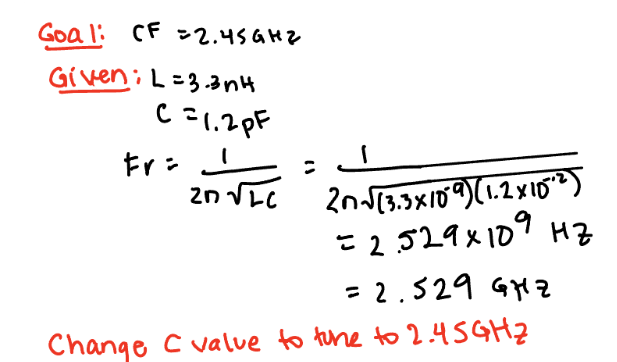 Goal: CF = 2.45GHz
Given: L = 3.3nH
C = 1.2pF
Fr = 1 / 2π√LC = 1 / 2π√(3.3x10⁻⁹)(1.2x10⁻¹²)
= 2.529x10⁹ Hz
= 2.529 GHz
Change C value to tune to 2.45GHz